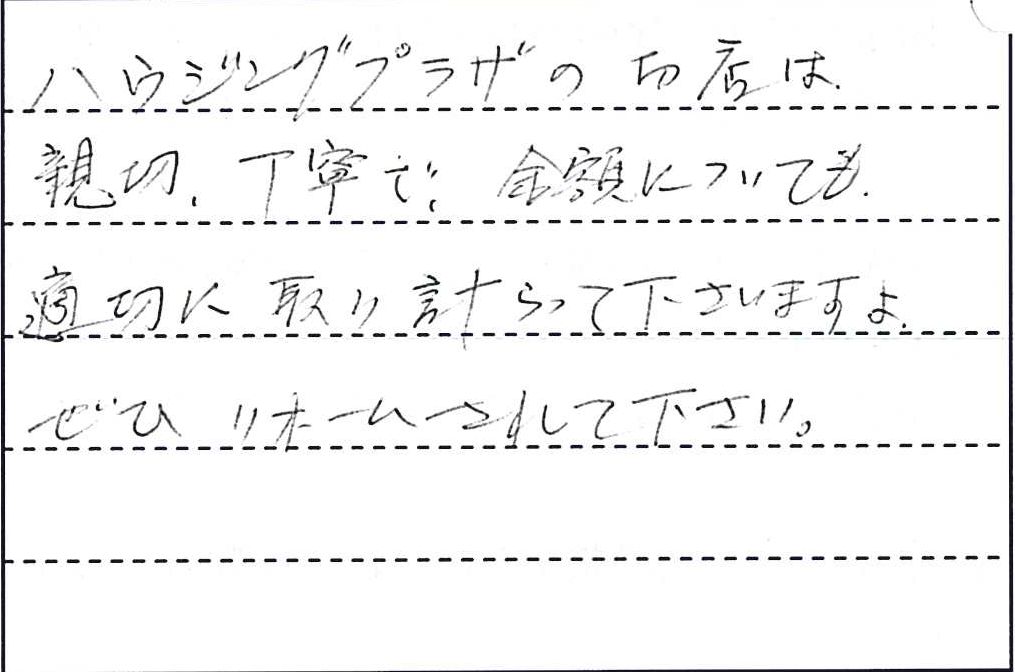 ハウジングプラザの 切店は、
親切、丁寧で、金額についても、
適切に取り計らって下さいますよ。
ぜひ リホームされて下さい。